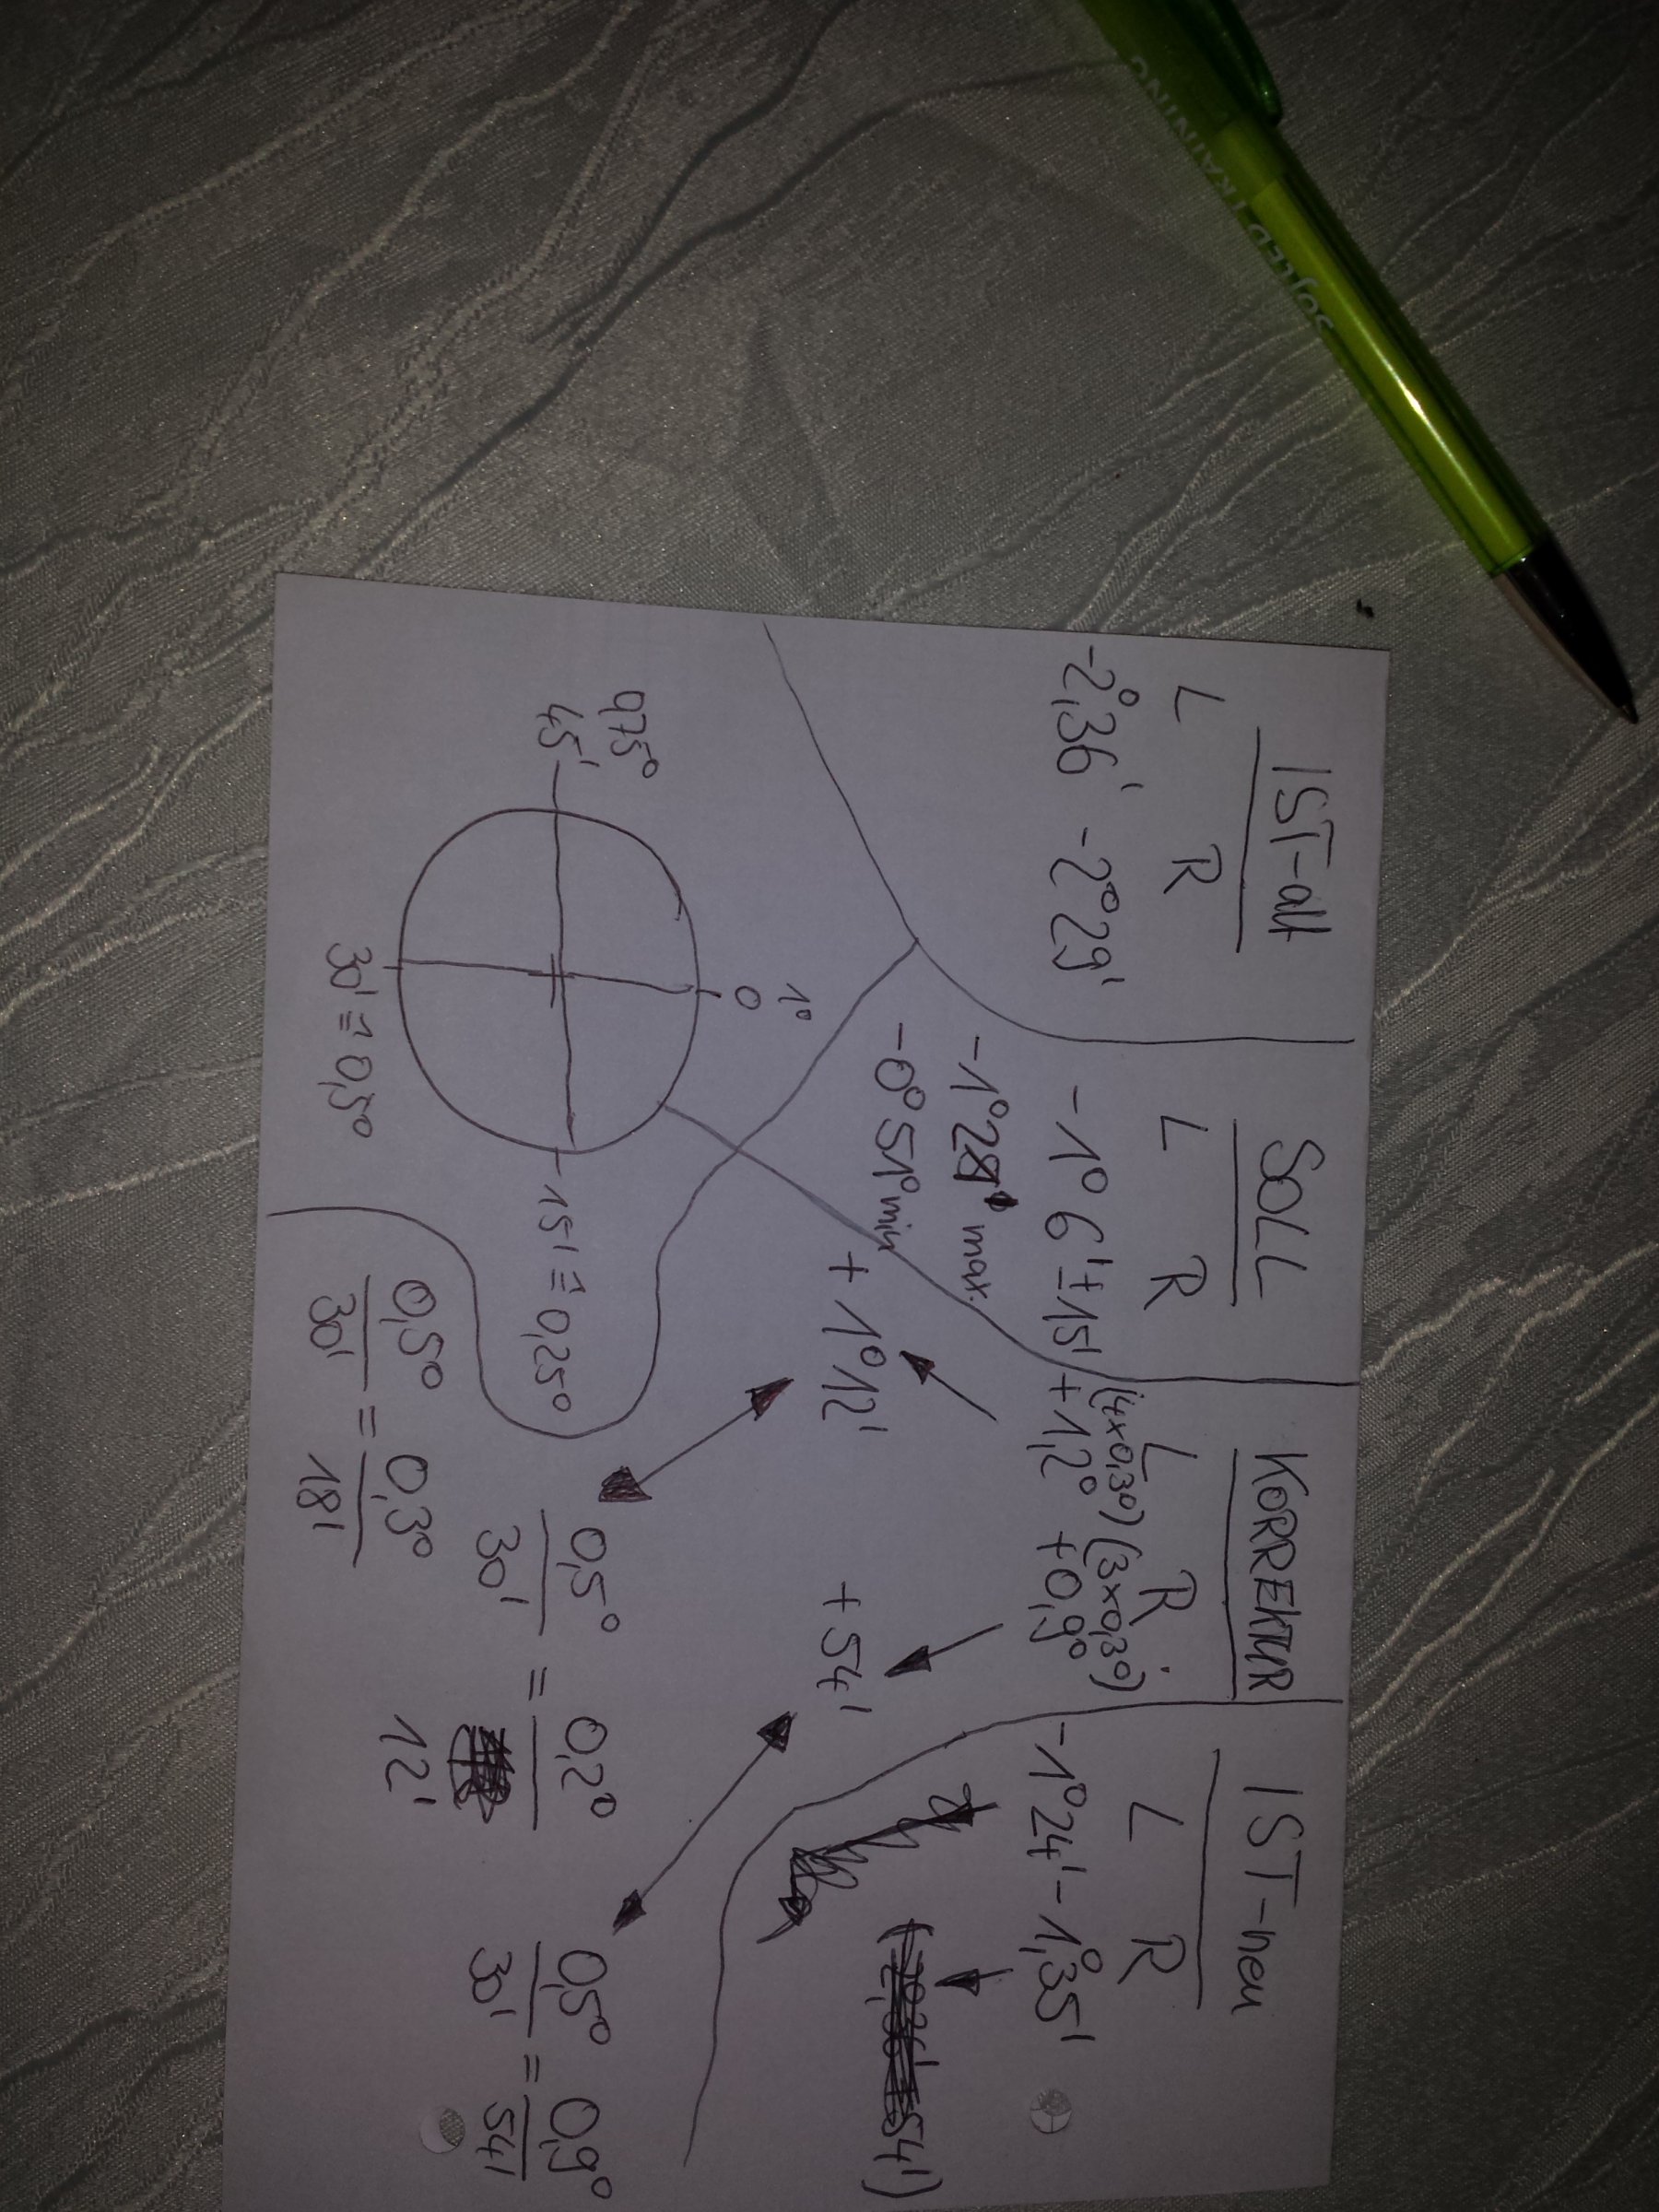 IST-alt
L R
-2°,36' -2°29'
SOLL
L R
-1° 6' ± 15'
-1°21' max.
-0° 51° min
KORREKTUR
L R
(4x0,3°) (3x0,3°)
+1,2° +0,9°
+ 1°12' + 54'
IST-neu
L R
-1°24' -1°,35'
54')
1°
0
0,75°
45'
15' ≙ 0,25°
30' ≙ 0,5°
0,5° = 0,2°
30' 12'
0,5° = 0,9°
30' 54'
0,5° = 0,3°
30' 18'
SOJLED TRAINING